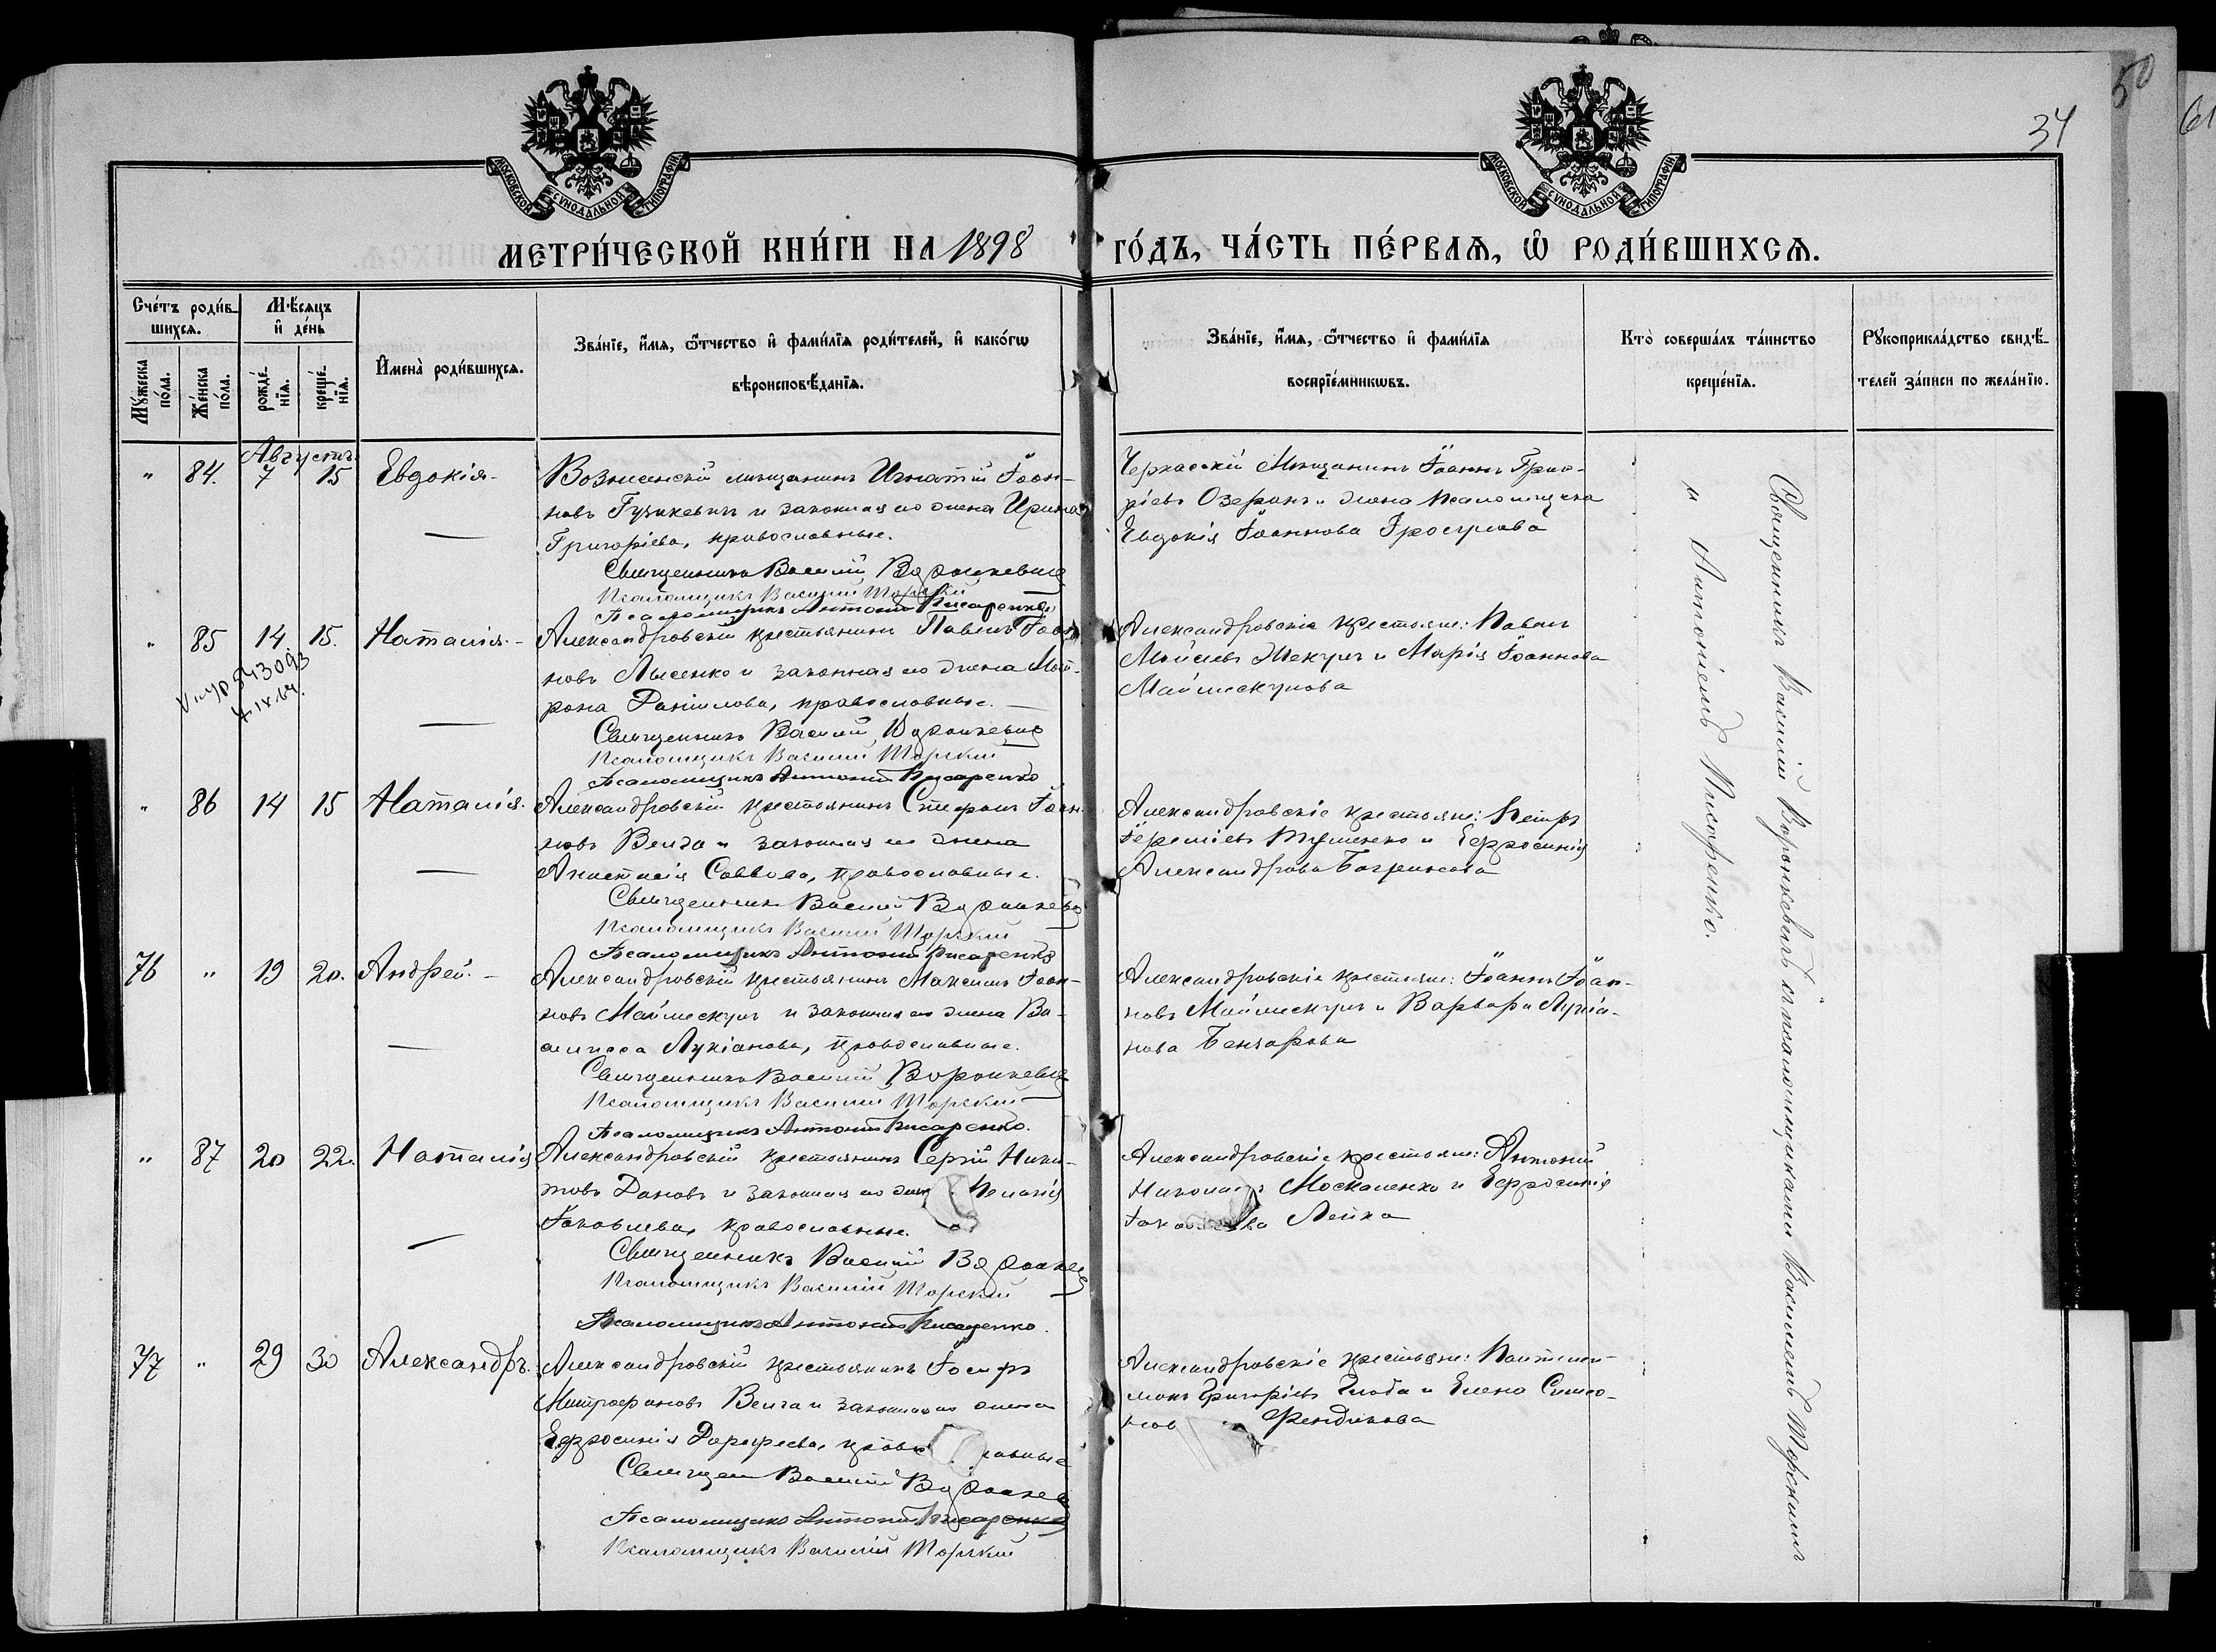 50
61
34
МОСКОВСКОЙ СѴНОДАЛЬНОЙ ТИПОГРАФІИ
МОСКОВСКОЙ СѴНОДАЛЬНОЙ ТИПОГРАФІИ
МЕТРИ́ЧЕСКОЙ КНИ́ГИ НА 1898 ГО́ДЪ, ЧА́СТЬ ПЕ́РВАѦ, Ѡ҆ РОДИ́ВШИХСѦ.
Сче́тъ роди́в-
шихсѧ.
Мꙋ́жеска по́ла.
Же́нска по́ла.
М҆ѣсѧцъ
и҆ де́нь
рожде́-
нїѧ.
креще́-
нїѧ.
И҆мена̀ роди́вшихсѧ.
Зва́нїе, и҆́мѧ, ѻ҆́тчество и҆ фами́лїѧ роди́телей, и҆ како́гѡ
вѣроисповѣ́данїѧ.
Зва́нїе, и҆́мѧ, ѻ҆́тчество и҆ фами́лїѧ
воспрїе́мникѡвъ.
Кто̀ соверша́лъ та́инство
креще́нїѧ.
Рꙋкоприкла́дство свидѣ́-
телей за́писи по жела́нїю.
Августъ
" 84. 7 15 Евдокія
Вознесенскій мѣщанинъ Игнатій Іоан-
новъ Гузикевичъ и законная его жена Ирина
Григоріева, православные.
Священникъ Василій Воронкевичъ
Псаломщикъ Василій Торскій
Псаломщикъ Антоній Писаренко
Черкасскій Мѣщанинъ Іоаннъ Григо-
ріевъ Озеранъ и жена псаломщика
Евдокія Іоаннова
" 85 14 15. Наталія.
Александровскій крестьянинъ Павелъ Іоан-
новъ Лысенко и законная его жена Мат-
рона Даніилова, православные.
Священникъ Василій Воронкевичъ
Псаломщикъ Василій Торскій
Псаломщикъ Антоній Писаренко
Александровскіе крестьяне: Павелъ
Моисеевъ Шекунъ и Марія Іоаннова
Маймескулова
" 86 14 15 Наталія.
Александровскій крестьянинъ Стефанъ Іоан-
новъ Велза и законная его жена
Анастасія Саввова, православные.
Священникъ Василій Воронкевичъ
Псаломщикъ Василій Торскій
Псаломщикъ Антоній Писаренко
Александровскіе крестьяне: Петръ
Іереміевъ и Ефросинія
Александрова
76 " 19 20. Андрей.
Александровскій крестьянинъ Максимъ Іоан-
новъ Маймескулъ и законная его жена Ва-
силисса Лукіанова, православные.
Священникъ Василій Воронкевичъ
Псаломщикъ Василій Торскій
Псаломщикъ Антоній Писаренко.
Александровскіе крестьяне: Іоаннъ Іоан-
новъ Маймескулъ и Варвара Лукіа-
нова Бензарова
" 87 20 22. Наталія
Александровскій крестьянинъ Сергій Ники-
товъ Дановъ и законная его жена Пелагія
Іаковлева, православные.
Священникъ Василій Воронкевичъ
Псаломщикъ Василій Торскій
Псаломщикъ Антоній Писаренко.
Александровскіе крестьяне: Антоній
Николаевъ Москаленко и Ефросинія
Іаковлева Лейка
77 " 29 30 Александръ.
Александровскій крестьянинъ Іосифъ
Митрофановъ Велза и законная его жена
Ефросинія Дорофеева, православные
Священ Василій Воронкевичъ
Псаломщикъ Антоній Писаренко
Псаломщикъ Василій Торскій
Александровскіе крестьяне: Пантелей-
монъ Григоріевъ Глоба и Елена Симео-
нова Фендикова
Священникъ Василій Воронкевичъ съ псаломщиками Василіемъ Торскимъ
и Антоніемъ Писаренко.